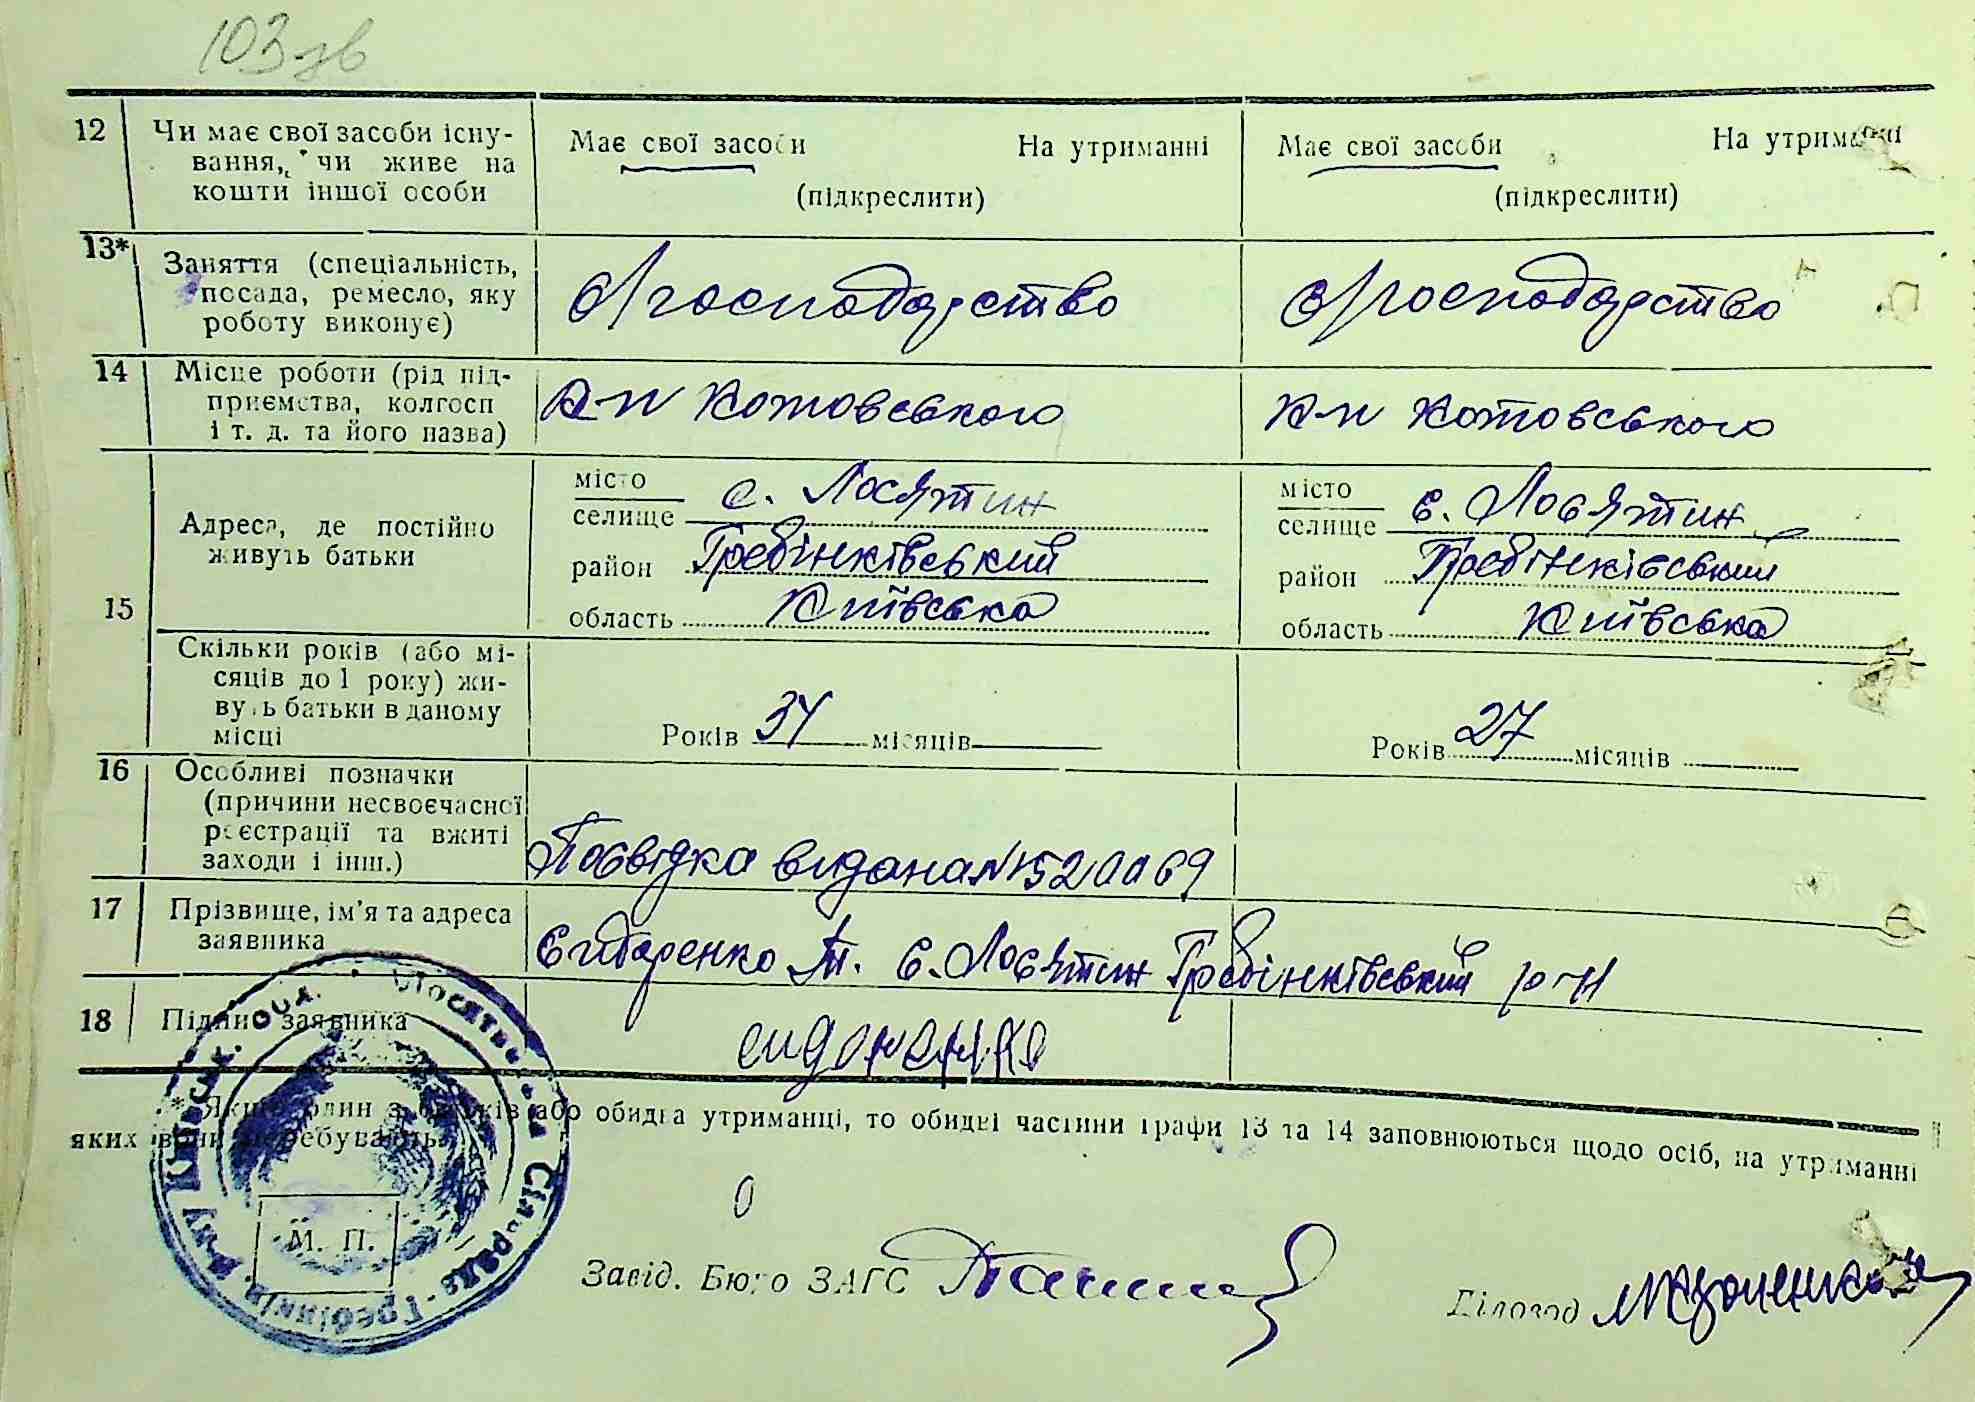 103 зв
12 Чи має свої засоби існу-
вання, чи живе на
кошти іншої особи
Має свої засоби На утриманні
(підкреслити)
Має свої засоби На утриманні
(підкреслити)
13* Заняття (спеціальність,
посада, ремесло, яку
роботу виконує)
с/господарство
с/господарство
14 Місце роботи (рід під-
приємства, колгосп
і т. д. та його назва)
к-п Котовського
к-п Котовського
15 Адреса, де постійно
живуть батьки
місто
селище с. Лосятин
район Гребінківський
область Київська
місто
селище с. Лосятин
район Гребінківський
область Київська
Скільки років (або мі-
сяців до 1 року) жи-
вуть батьки в даному
місці
Років 34 місяців
Років 27 місяців
16 Особливі позначки
(причини несвоєчасної
реєстрації та вжиті
заходи і інш.)
Посвідка видана №520069
17 Прізвище, ім'я та адреса
заявника
Сидоренко Т. с. Лосятин Гребінківський р-н
18 Підпис заявника
* Якщо один з батьків або обидва утриманці, то обидві частини графи 13 та 14 заповнюються щодо осіб, на утриманні
яких вони перебувають.
М. П.
Лосятинська Сільрада Гребінків. р-ну Київськ. обл.
Завід. Бюро ЗАГС
Діловод